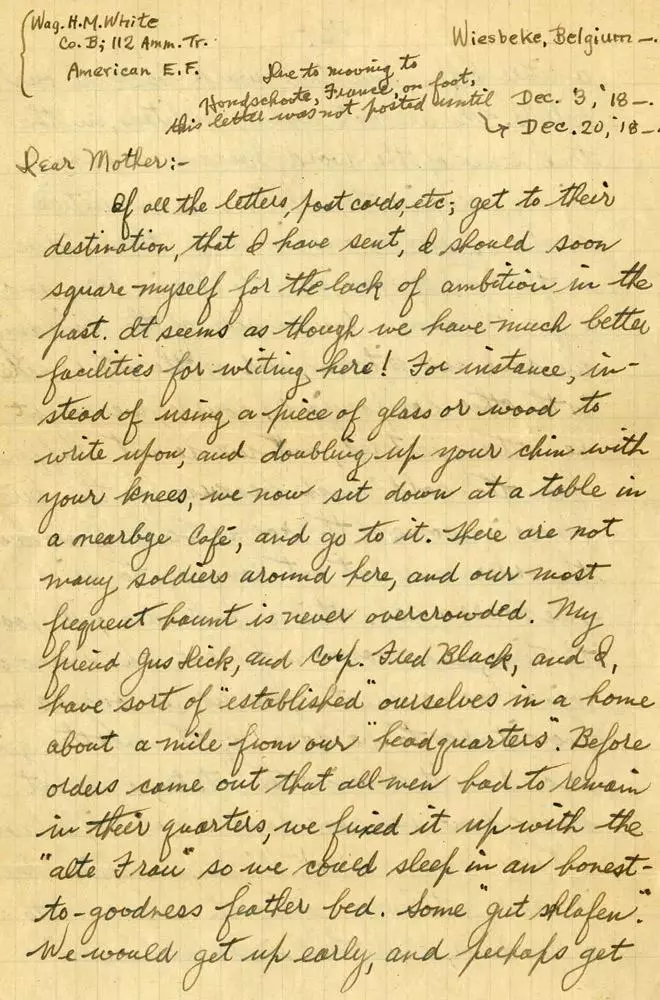 Wag. H.M. White
Co. B; 112 Amm. Tr.
American E.F.
Wiesbeke, Belgium —.
Due to moving to
Hondschoote, France, on foot,
this letter was not posted until
Dec. 3, '18 —.
Dec. 20, '18 —.
Dear Mother:-
If all the letters, post cards, etc; get to their
destination, that I have sent, I should soon
square myself for the lack of ambition in the
past. It seems as though we have much better
facilities for writing here! For instance, in-
stead of using a piece of glass or wood to
write upon, and doubling up your chin with
your knees, we now sit down at a table in
a nearbye Café, and go to it. There are not
many soldiers around here, and our most
frequent haunt is never overcrowded. My
friend Gus Rick, and Corp. Fred Black, and I,
have sort of "established" ourselves in a home
about a mile from our "headquarters". Before
orders came out that all men had to remain
in their quarters, we fixed it up with the
"alte Frau" so we could sleep in an honest-
to-goodness feather bed. Some "gut schlafen".
We would get up early, and perhaps get